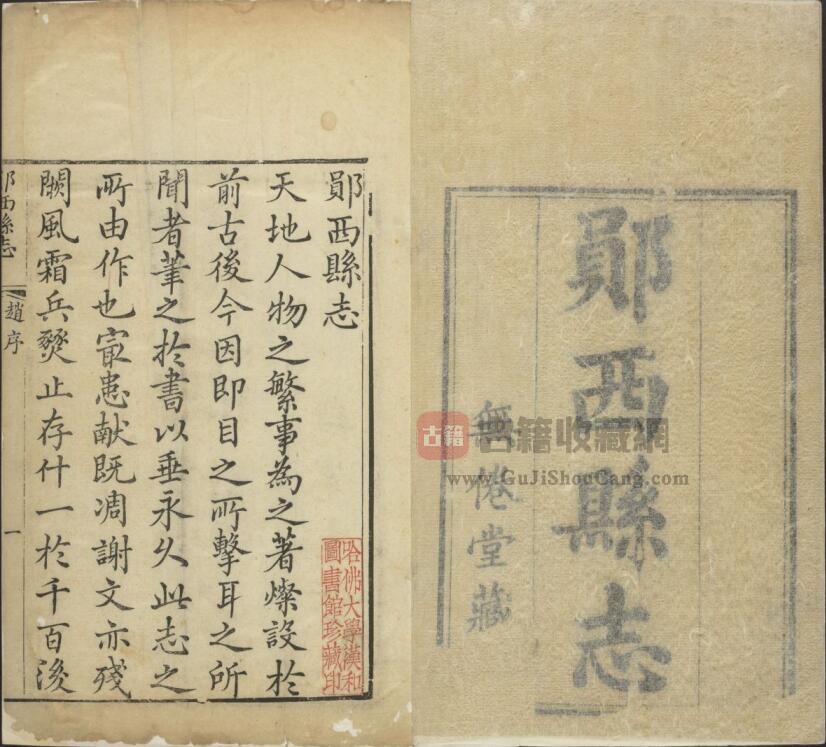 鄖西縣志
無倦堂藏
古籍
古籍收藏網
www.GuJiShouCang.com
鄖西縣志
天地人物之繁事為之著燦設於
前古後今因即目之所擊耳之所
聞者筆之於書以垂永久此志之
所由作也寇患献既凋謝文亦殘
闕風霜兵燹止存什一於千百後
鄖西縣志
趙序
一
哈佛大學漢和
圖書館珍藏印